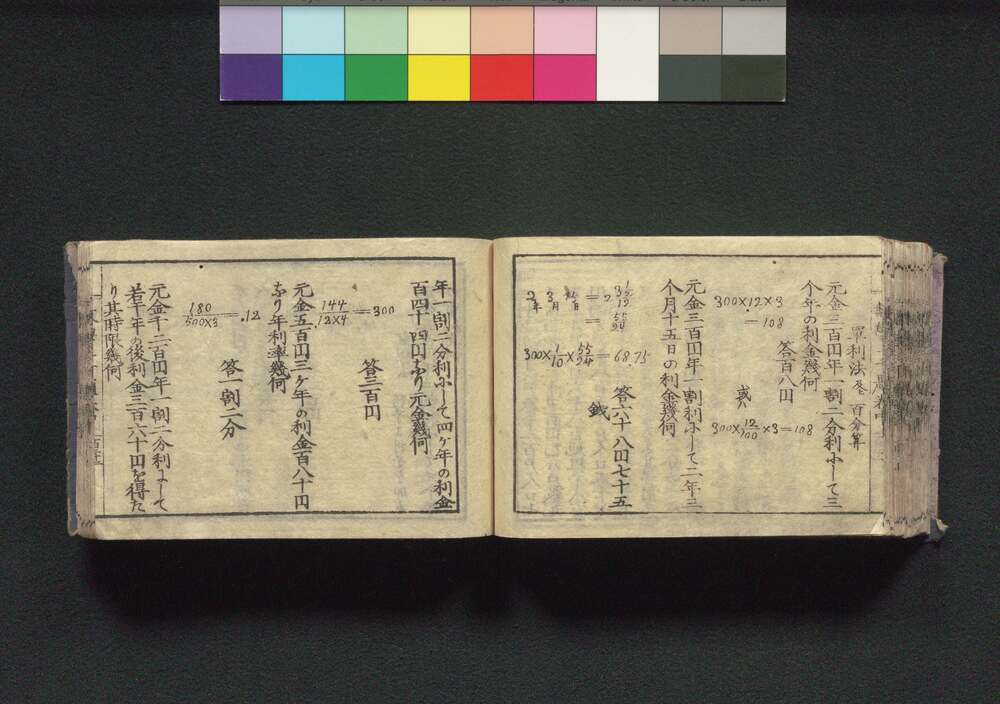 單利法及百分算
元金三百円年一割二分利ふして三
个年の利金幾何
答百八円
300×12×3
= 108
或ハ
300×12/100×3=108
元金三百円年一割利ふして二年三
个月十五日の利金幾何
答六十八円七十五
銭
2年 3月
= 55/24
300×1/10×55/24=68.75
年一割二分利ふして四ヶ年の利金
百四十四円あり元金幾何
答三百円
144/.12×4=300
元金五百円三ヶ年の利金百八十円
あり年利率幾何
答一割二分
180/500×3=.12
元金千二百円年一割二分利ふして
若干年の後利金三百六十円を得た
り其時限幾何